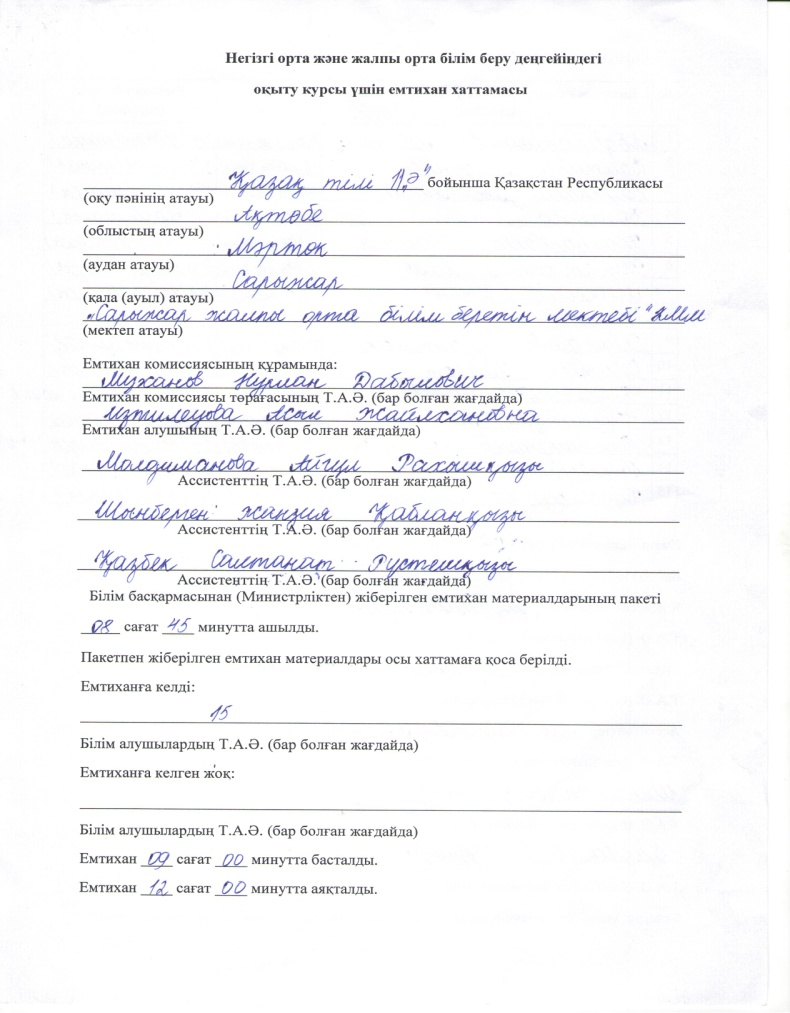 Негізгі орта және жалпы орта білім беру деңгейіндегі
оқыту курсы үшін емтихан хаттамасы
Қазақ тілі 11 "Ә" бойынша Қазақстан Республикасы
(оқу пәнінің атауы)
Ақтөбе
(облыстың атауы)
Мәртөк
(аудан атауы)
Сарыжар
(қала (ауыл) атауы)
"Сарыжар жалпы орта білім беретін мектебі" КММ
(мектеп атауы)
Емтихан комиссиясының құрамында:
Муханов Нурлан Дабылович
Емтихан комиссиясы төрағасының Т.А.Ә. (бар болған жағдайда)
Изтилеуова Асыл Жайлхановна
Емтихан алушының Т.А.Ә. (бар болған жағдайда)
Молдиманова Айгүл Рахышқызы
Ассистенттің Т.А.Ә. (бар болған жағдайда)
Шынберген Қабланқызы
Ассистенттің Т.А.Ә. (бар болған жағдайда)
Қазбек Салтанат Рүстемқызы
Ассистенттің Т.А.Ә. (бар болған жағдайда)
Білім басқармасынан (Министрліктен) жіберілген емтихан материалдарының пакеті
08 сағат 45 минутта ашылды.
Пакетпен жіберілген емтихан материалдары осы хаттамаға қоса берілді.
Емтиханға келді:
15
Білім алушылардың Т.А.Ә. (бар болған жағдайда)
Емтиханға келген жоқ:
Білім алушылардың Т.А.Ә. (бар болған жағдайда)
Емтихан 09 сағат 00 минутта басталды.
Емтихан 12 сағат 00 минутта аяқталды.